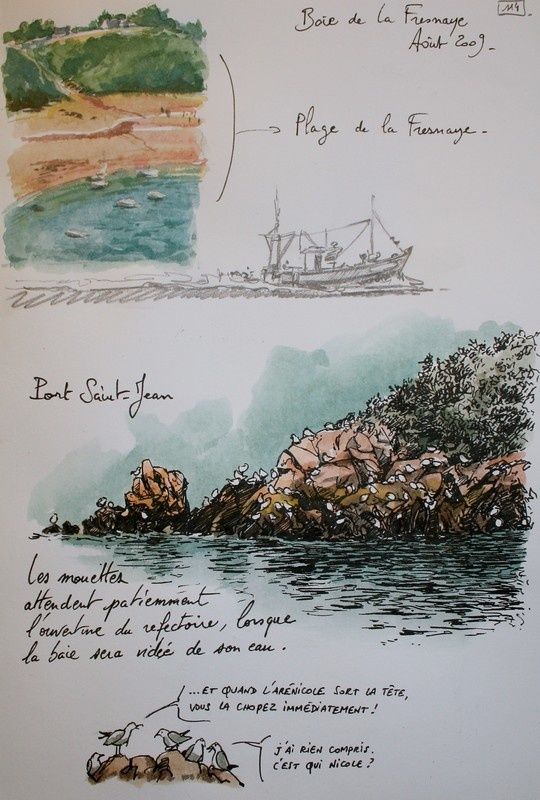 114
Baie de la Fresnaye
Août 2009.
Plage de la Fresnaye.
Port Saint-Jean
Les mouettes
attendent patiemment
l'ouverture du refectoire, lorsque
la baie sera vidée de son eau.
...ET QUAND L'ARÉNICOLE SORT LA TÊTE,
VOUS LA CHOPEZ IMMÉDIATEMENT !
J'AI RIEN COMPRIS.
C'EST QUI NICOLE ?